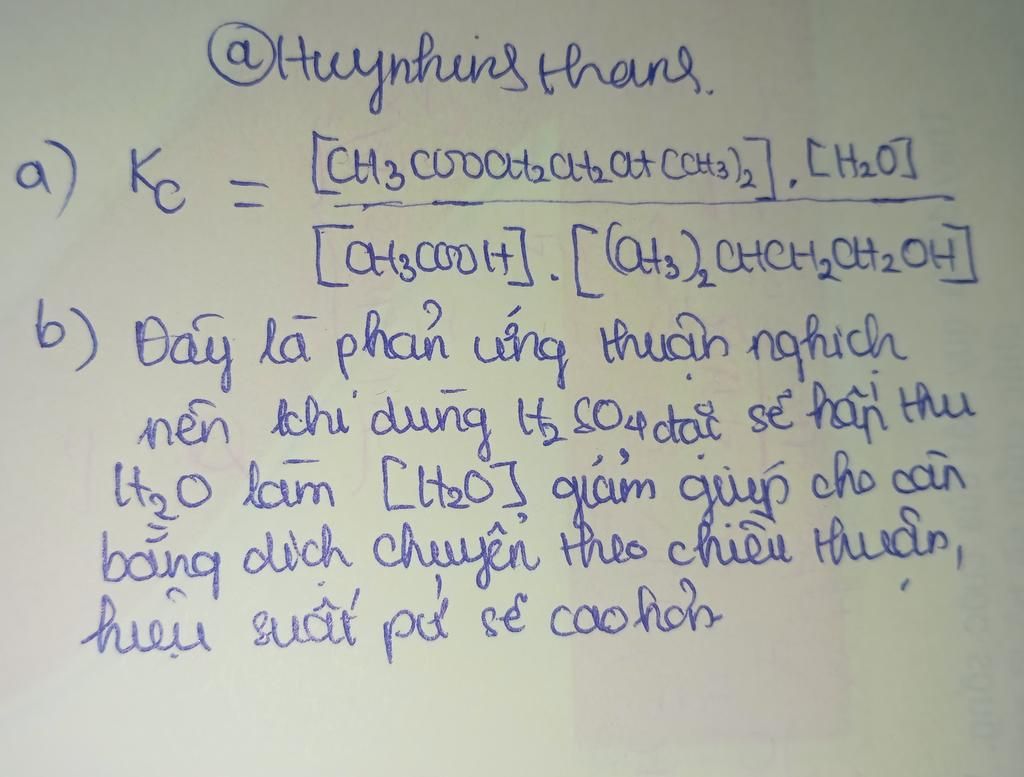 @Huynhins thans.
a) Kc = [CH3COOCH2CH2CH(CH3)2].[H2O] / [CH3COOH].[(CH3)2CHCH2CH2OH]
b) Đây là phản ứng thuận nghịch
nên khi dùng H2SO4 đặc sẽ hấp thu
H2O làm [H2O] giảm giúp cho cân
bằng dịch chuyển theo chiều thuận,
hiệu suất pứ sẽ cao hơn